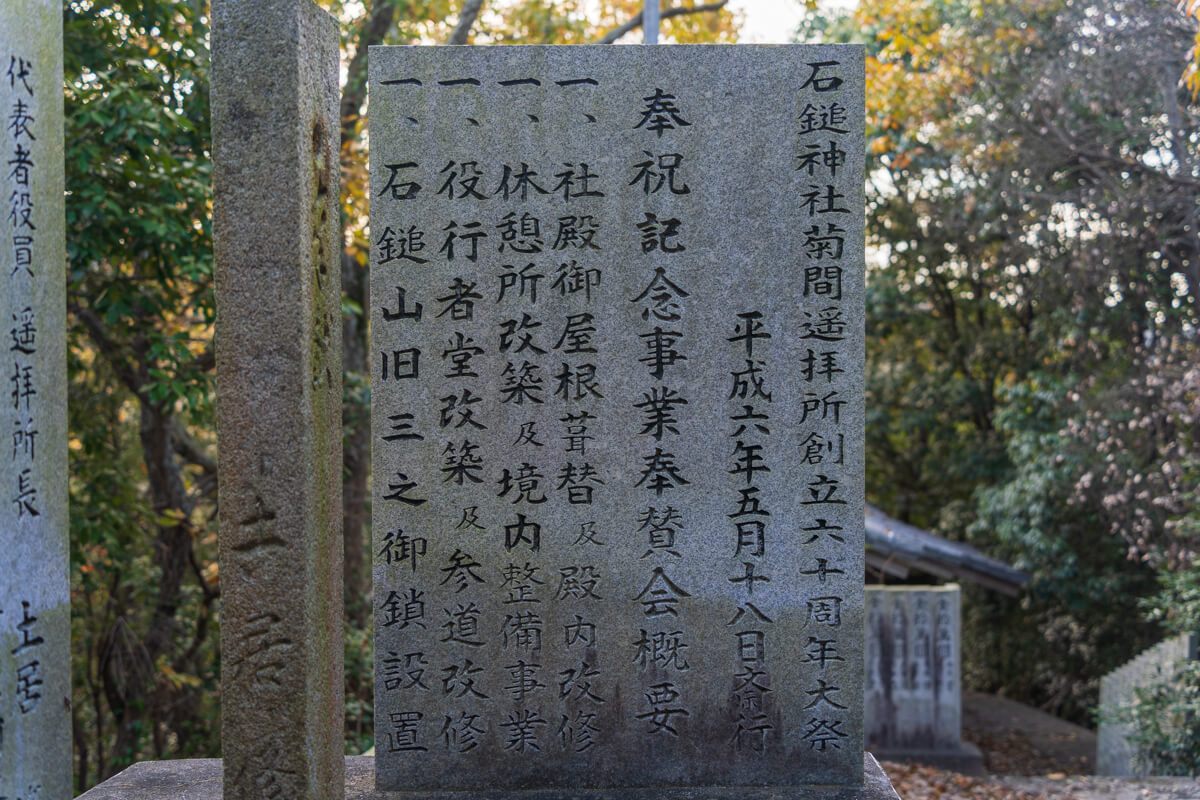 石鎚神社菊間遥拝所創立六十周年大祭
平成六年五月十八日斎行
奉祝記念事業奉賛会概要
一、社殿御屋根葺替及殿内改修
一、休憩所改築及境内整備事業
一、役行者堂改築及参道改修
一、石鎚山旧三之御鎖設置
土居
代表者役員 遥拝所長 土居